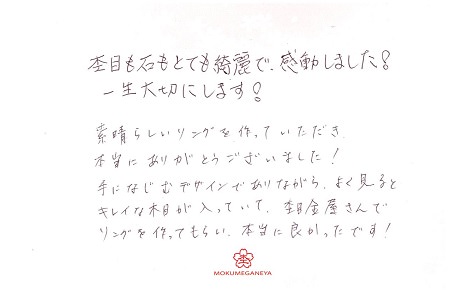 杢目も石もとても綺麗で、感動しました！
一生大切にします！
素晴らしいリングを作っていただき
本当にありがとうございました！
手になじむデザインでありながら、よく見ると
キレイな木目が入っていて、杢目金屋さんで
リングを作ってもらい、本当に良かったです！
杢
MOKUMEGANEYA